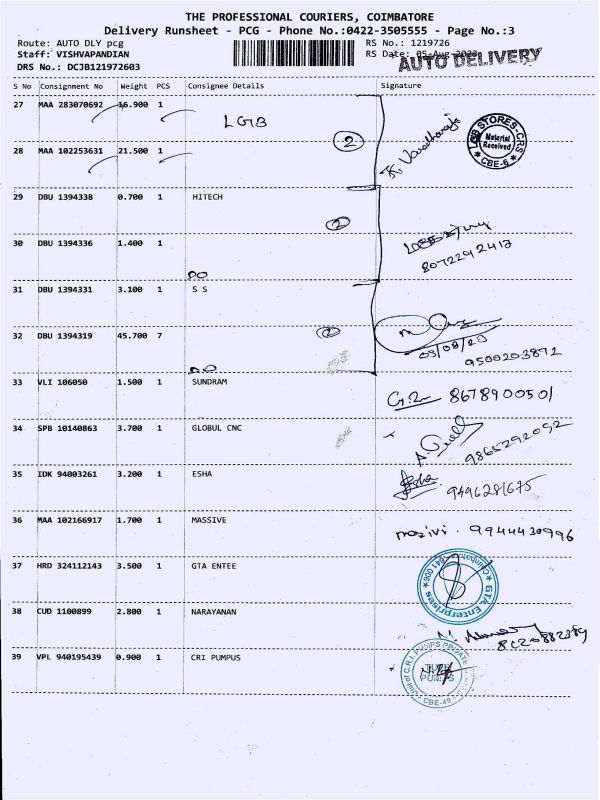 THE PROFESSIONAL COURIERS, COIMBATORE
Delivery Runsheet - PCG - Phone No.:0422-3505555 - Page No.:3
Route: AUTO DLY pcg RS No.: 1219726
Staff: VISHVAPANDIAN RS Date: 05-Aug-2020 AUTO DELIVERY
DRS No.: DCJB121972603
S No Consignment No Weight PCS Consignee Details Signature
27 MAA 283070692 16.900 1
LGB
2
LGB STORES-CRS Material Received CBE-6
28 MAA 102253631 21.500 1
29 DBU 1394338 0.700 1 HITECH
2
30 DBU 1394336 1.400 1
8072242417
DO
31 DBU 1394331 3.100 1 S S
32 DBU 1394319 45.700 7
2
05/08/20
9500203872
DO
33 VLI 106050 1.500 1 SUNDRAM
8678900501
34 SPB 10140863 3.700 1 GLOBUL CNC
9865292092
35 IDK 94003261 3.200 1 ESHA
Esha
9496281675
36 MAA 102166917 1.700 1 MASSIVE
masivi . 9944430996
37 HRD 324112143 3.500 1 GTA ENTEE
GTA Enterprises Coimbatore 641 006
38 CUD 1100899 2.800 1 NARAYANAN
39 VPL 940195439 0.900 1 CRI PUMPUS
Unit of C.R.I. PUMPS PRIVATE
PUMPS
CBE-49